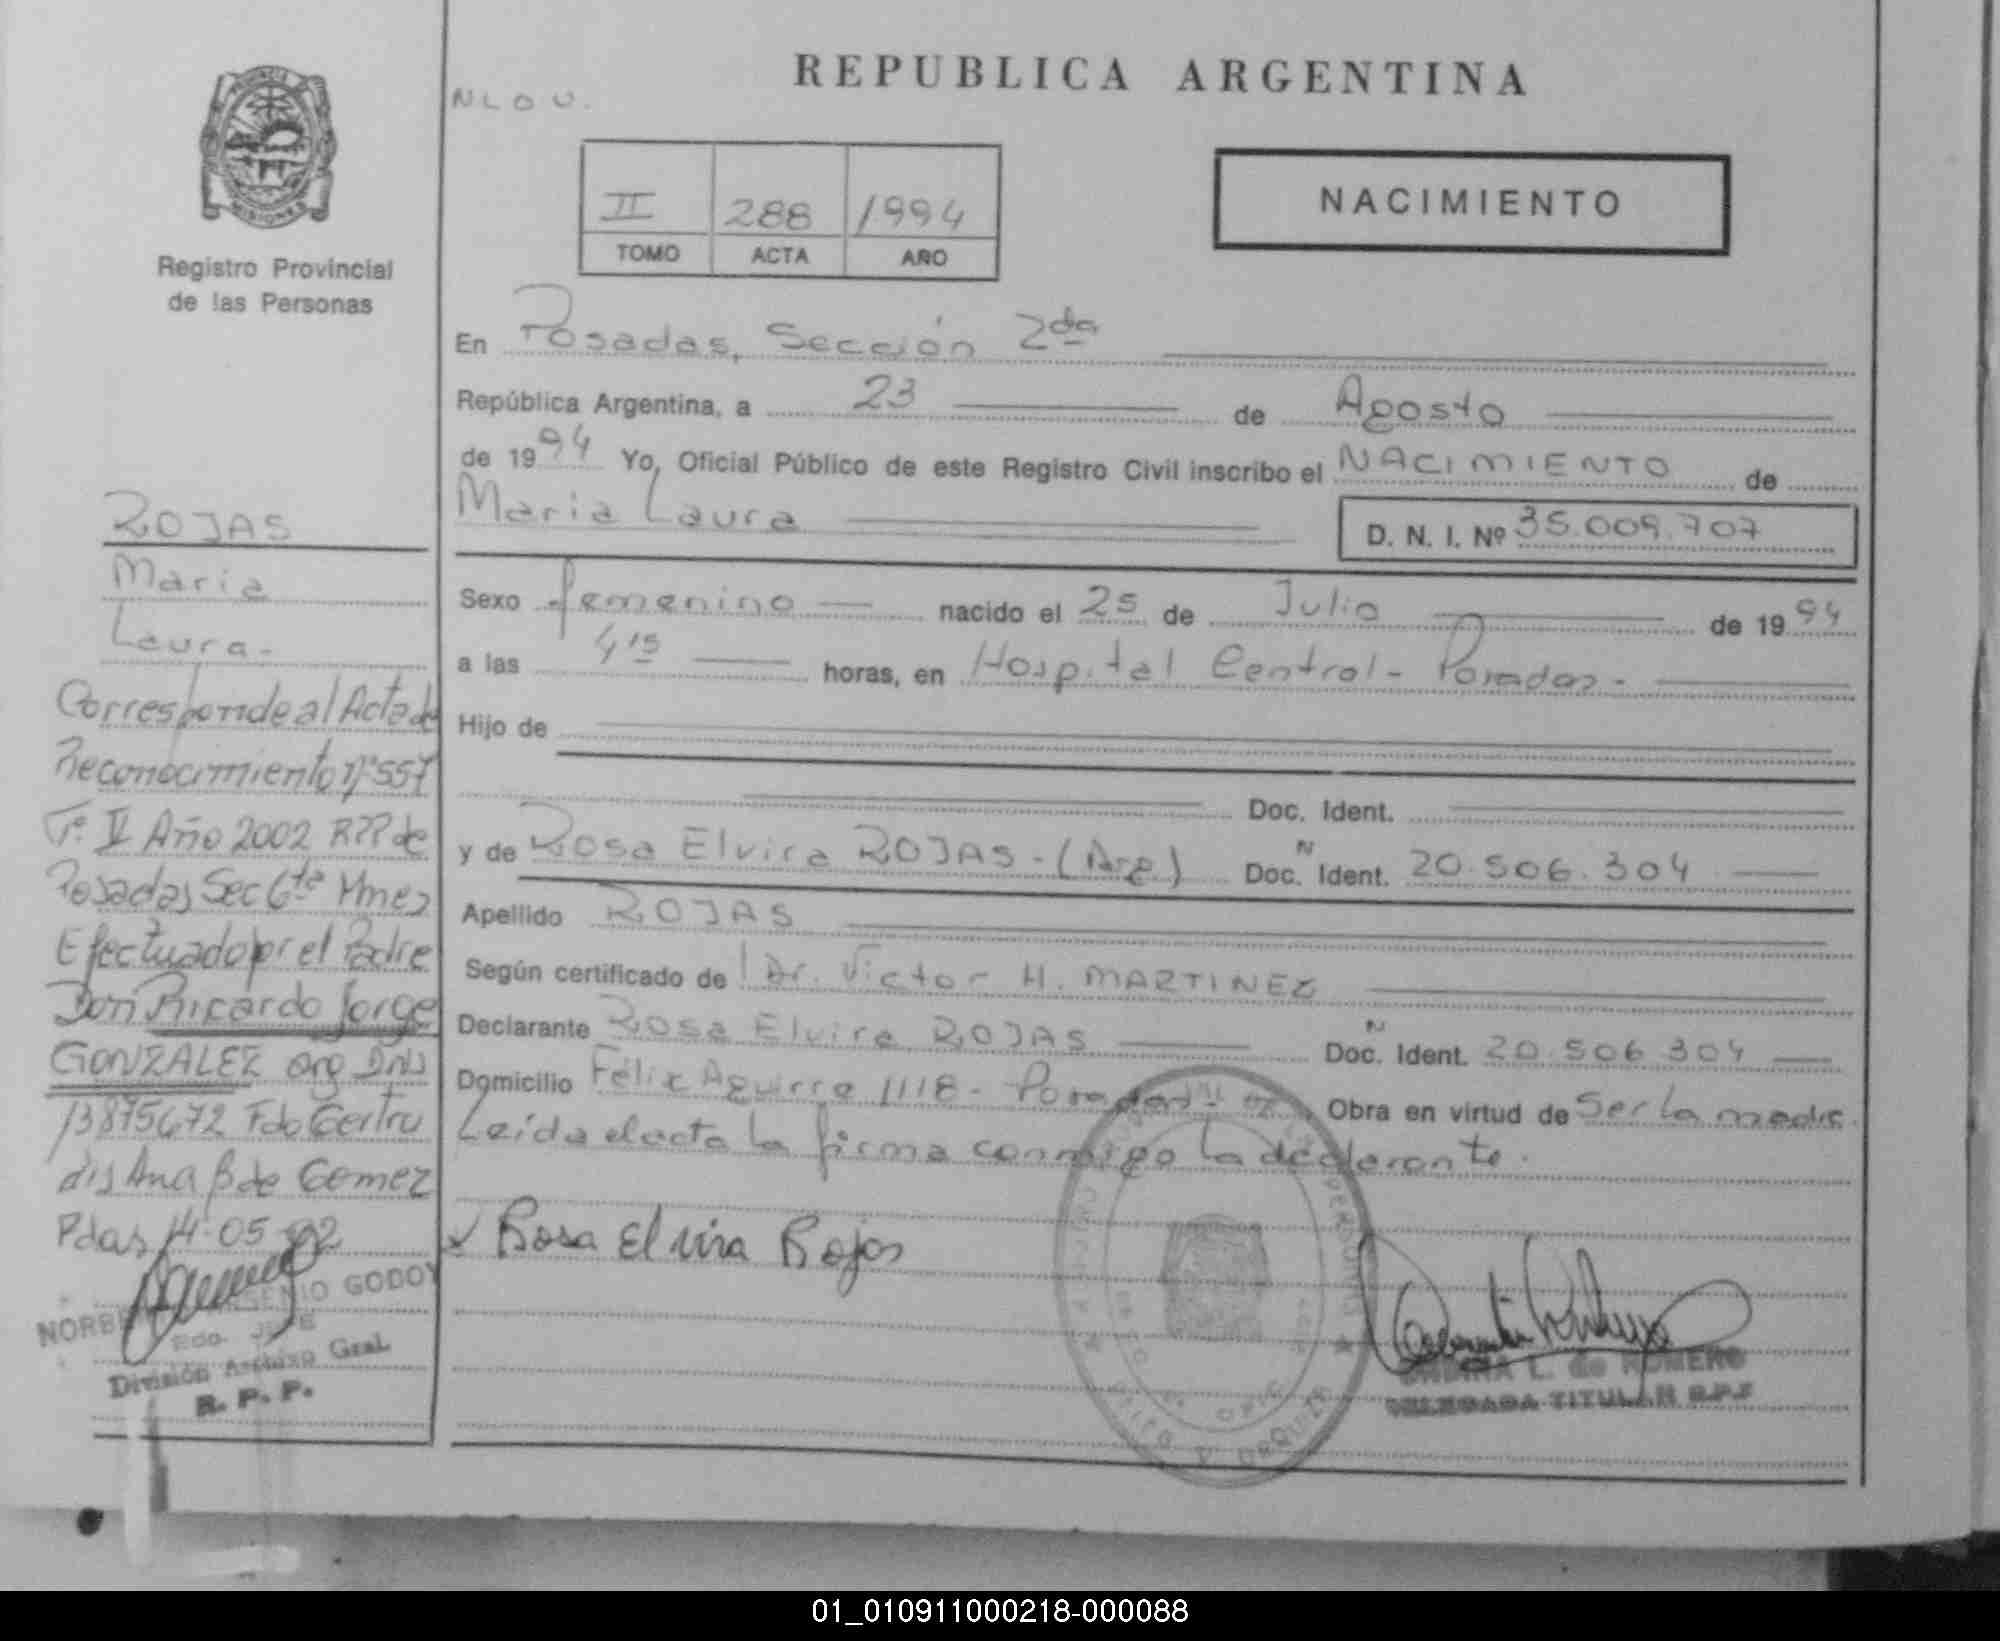 REPUBLICA ARGENTINA
N L O U.
NACIMIENTO
II 288 1994
TOMO ACTA AÑO
MISIONES
Registro Provincial
de las Personas
En Posadas, Sección 2da
República Argentina, a 23 de Agosto
de 1994 Yo, Oficial Público de este Registro Civil inscribo el NACIMIENTO de
Maria Laura D. N. I. Nº 35.009.707
Sexo femenino nacido el 25 de Julio de 1994
a las 4 15 horas, en Hospital Central - Posadas -
Hijo de
Doc. Ident.
y de Rosa Elvira ROJAS - (Arg) Doc. N Ident. 20.506.304
Apellido ROJAS
Según certificado de Dr. Victor H. MARTINEZ
Declarante Rosa Elvira ROJAS Doc. N Ident. 20.506.304
Domicilio Félix Aguirre 1118 - Posadas Obra en virtud de Ser la madre.
Leída el acta la firma conmigo la declarante.
Rosa Elvira Rojas
L. de ROMERO
DELEGADA TITULAR R.P.P.
ROJAS
Maria
Laura -
Corresponde al Acta de
Reconocimiento Nº 557
Tº II Año 2002 RPP de
Posadas Sec 6ta Mnes
Efectuado por el Padre
Don Ricardo Jorge
GONZALEZ arg DNI
13875672 Fdo Certru
dis Ana B de Gomez
Pdas 14-05-02
GODOY
JEFE
División Archivo Gral.
R. P. P.
01_010911000218-000088